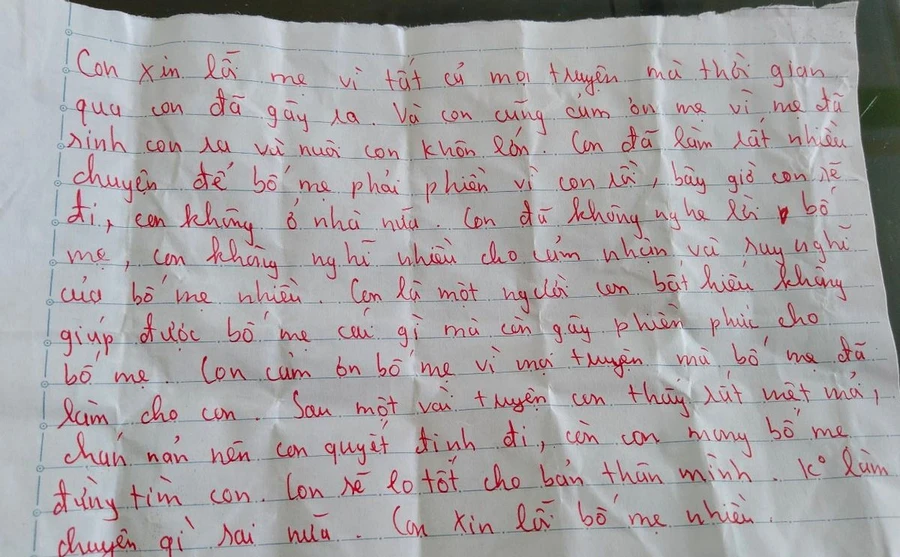 Con xin lỗi mẹ vì tất cả mọi truyện mà thời gian
qua con đã gây ra. Và con cũng cảm ơn mẹ vì mẹ đã
sinh con ra và nuôi con khôn lớn. Con đã làm rất nhiều
chuyện để bố mẹ phải phiền vì con rồi, bây giờ con sẽ
đi, con không ở nhà nữa. Con đã không nghe lời bố
mẹ, con không nghĩ nhiều cho cảm nhận và suy nghĩ
của bố mẹ nhiều. Con là một người con bất hiếu không
giúp được bố mẹ cái gì mà còn gây phiền phức cho
bố mẹ. Con cảm ơn bố mẹ vì mọi truyện mà bố mẹ đã
làm cho con. Sau một vài truyện con thấy rất mệt mỏi,
chán nản nên con quyết định đi, còn con mong bố mẹ
đừng tìm con. Con sẽ lo tốt cho bản thân mình. K° làm
chuyện gì sai nữa. Con xin lỗi bố mẹ nhiều.